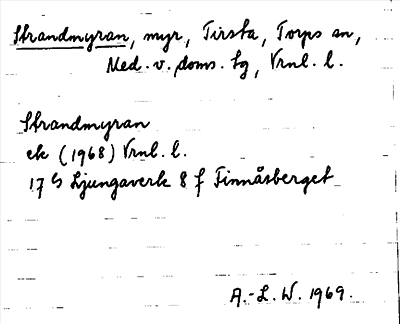 Strandmyran, myr, Tirsta, Torps sn,
Med. v. doms. sg, Vrnl. l.
Strandmyran
ek (1968) Vrnl. l.
17 G Ljungaverk 8 f Finnåsberget
A.-L. W. 1969.